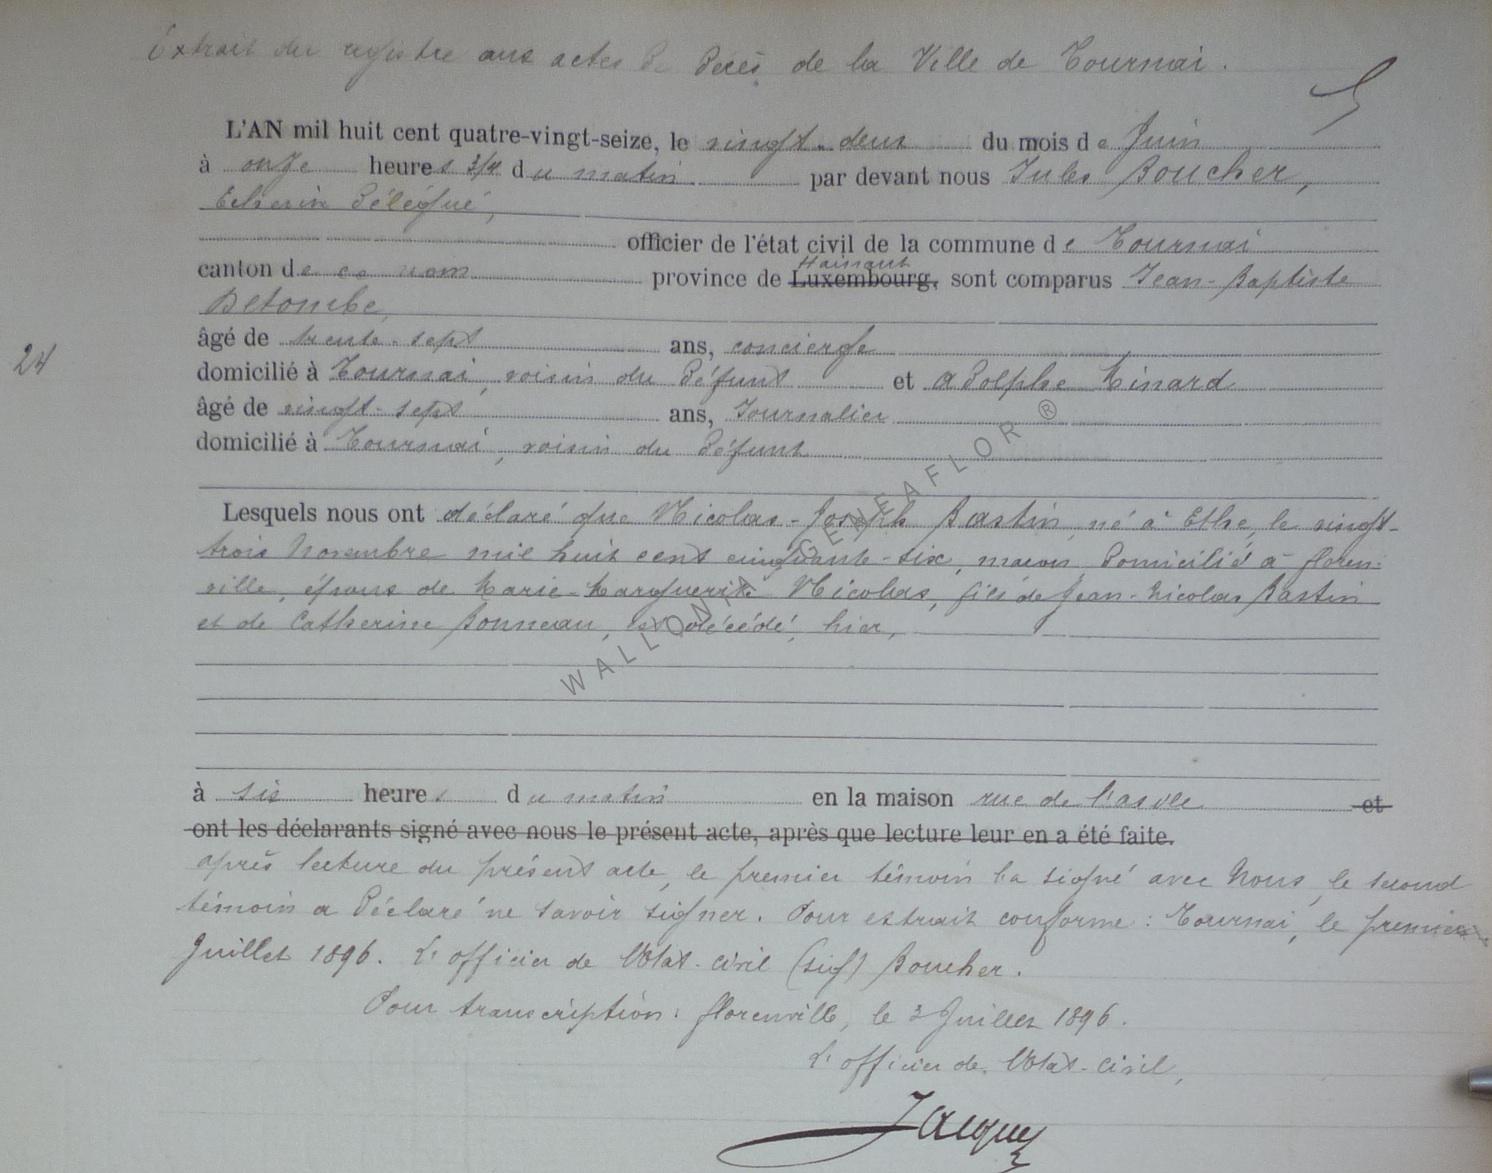 Extrait du registre aux actes de Décès de la Ville de Tournai.
L'AN mil huit cent quatre-vingt-seize, le vingt-deux du mois de Juin
à onze heures 3/4 du matin par devant nous Jules Boucher,
Echevin Délégué,
officier de l'état civil de la commune de Tournai
canton de ce nom province de Luxembourg, Hainaut sont comparus Jean-Baptiste
Detombe,
âgé de trente-sept ans, concierge
24
domicilié à Tournai, voisin du Défunt et Adolphe Minard
âgé de vingt-sept ans, Journalier
domicilié à Tournai, voisin du Défunt
Lesquels nous ont déclaré que Nicolas-Joseph Bastin, né à Ethe, le vingt-
trois Novembre mil huit cent cinquante-six, maçon, Domicilié à Floren-
ville, époux de Marie-Marguerite Nicolas, fils de Jean-Nicolas Bastin
et de Catherine Bonneau, est décédé, hier,
à six heures du matin en la maison rue de l'asyle et
ont les déclarants signé avec nous le présent acte, après que lecture leur en a été faite.
après lecture du présent acte, le premier témoin l'a signé avec Nous, le second
témoin a Déclaré ne savoir signer. Pour extrait conforme : Tournai, le premier
Juillet 1896. L'officier de l'Etat-civil (sig) Boucher.
Pour transcription : Florenville, le 3 Juillet 1896.
L'officier de l'Etat-Civil,
Jacques
WALLONIA GENEAFLOR ®